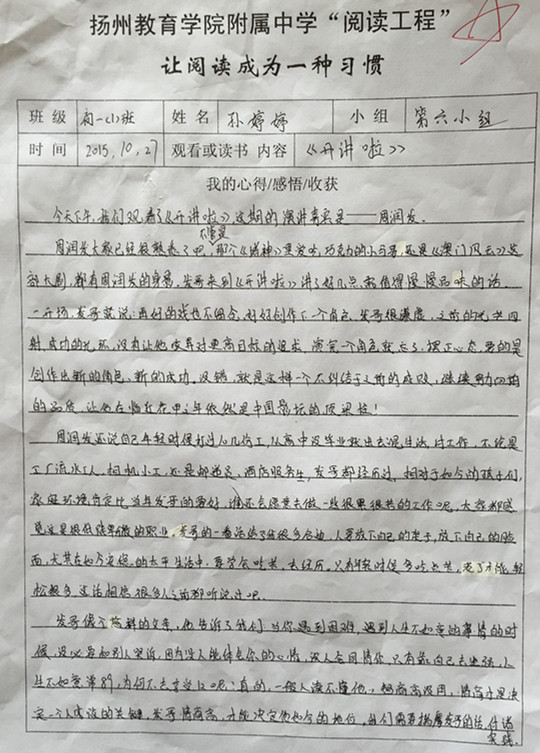 扬州教育学院附属中学“阅读工程”
让阅读成为一种习惯
班 级 初一(1)班 姓 名 孙婷婷 小 组 第六小组
时 间 2015.10.27 观看或读书 内容 《开讲啦》
我的心得/感悟/收获
今天下午,我们观看了《开讲啦》,这期的演讲嘉宾是——周润发。
不管是
周润发大家已经很熟悉了吧,那个《赌神》里发哥,巧克力的小习惯,还是《澳门风云》这
部大剧,都有周润发的身影,发哥来到《开讲啦》讲了好几点,都值得慢慢品味的话
一开场,发哥就说:再好的戏也不留念,好好创作下一个角色,发哥很谦虚,之前的光芒四
射,成功的光环,没有让他放弃对更高目标的追求,演完一个角色就忘了,摆正心态,要的是
创作出新的角色,新的成功。没错,就是这样一个不纠结于之前的成败,继续努力向前
的品质,让他在临近在甲之年依然是中国影坛的顶梁柱!
周润发还说自己年轻时候打过几份工,从高中没毕业就出去混生活,讨工作,不论是
工厂流水工人,相机小工,还是邮递员,酒店服务生,发哥都经历过,相对于如今的孩子们,
家庭环境肯定比当年发哥的要好,谁还会愿意去做一些很累很苦的工作呢,大家都感
觉这是很低级卑微的职业,发哥的一番话给了我很多启迪,人要放下自己的架子,放下自己的脸
面,尤其在如今安稳的太平生活中,要学会吃苦,去经历。只有年轻时候多吃点苦,老了才能轻
松很多,这话相信很多人之前都听说过吧。
发哥像个慈祥的父亲,他告诉了我们当你遇到困难,遇到人生不如意的事情的时
候,没必要和别人哭诉,因为没人能体会你的心情,没人会同情你,只有靠自己去坚强,人
生不如意常八九,为何不去享受它呢?真的,一般人读不懂他,智商高没用,情商才是决
定一个人成败的关键,发哥情商高,才能决定他如今的地位,我们需要揣摩发哥的话,付诸
实践。